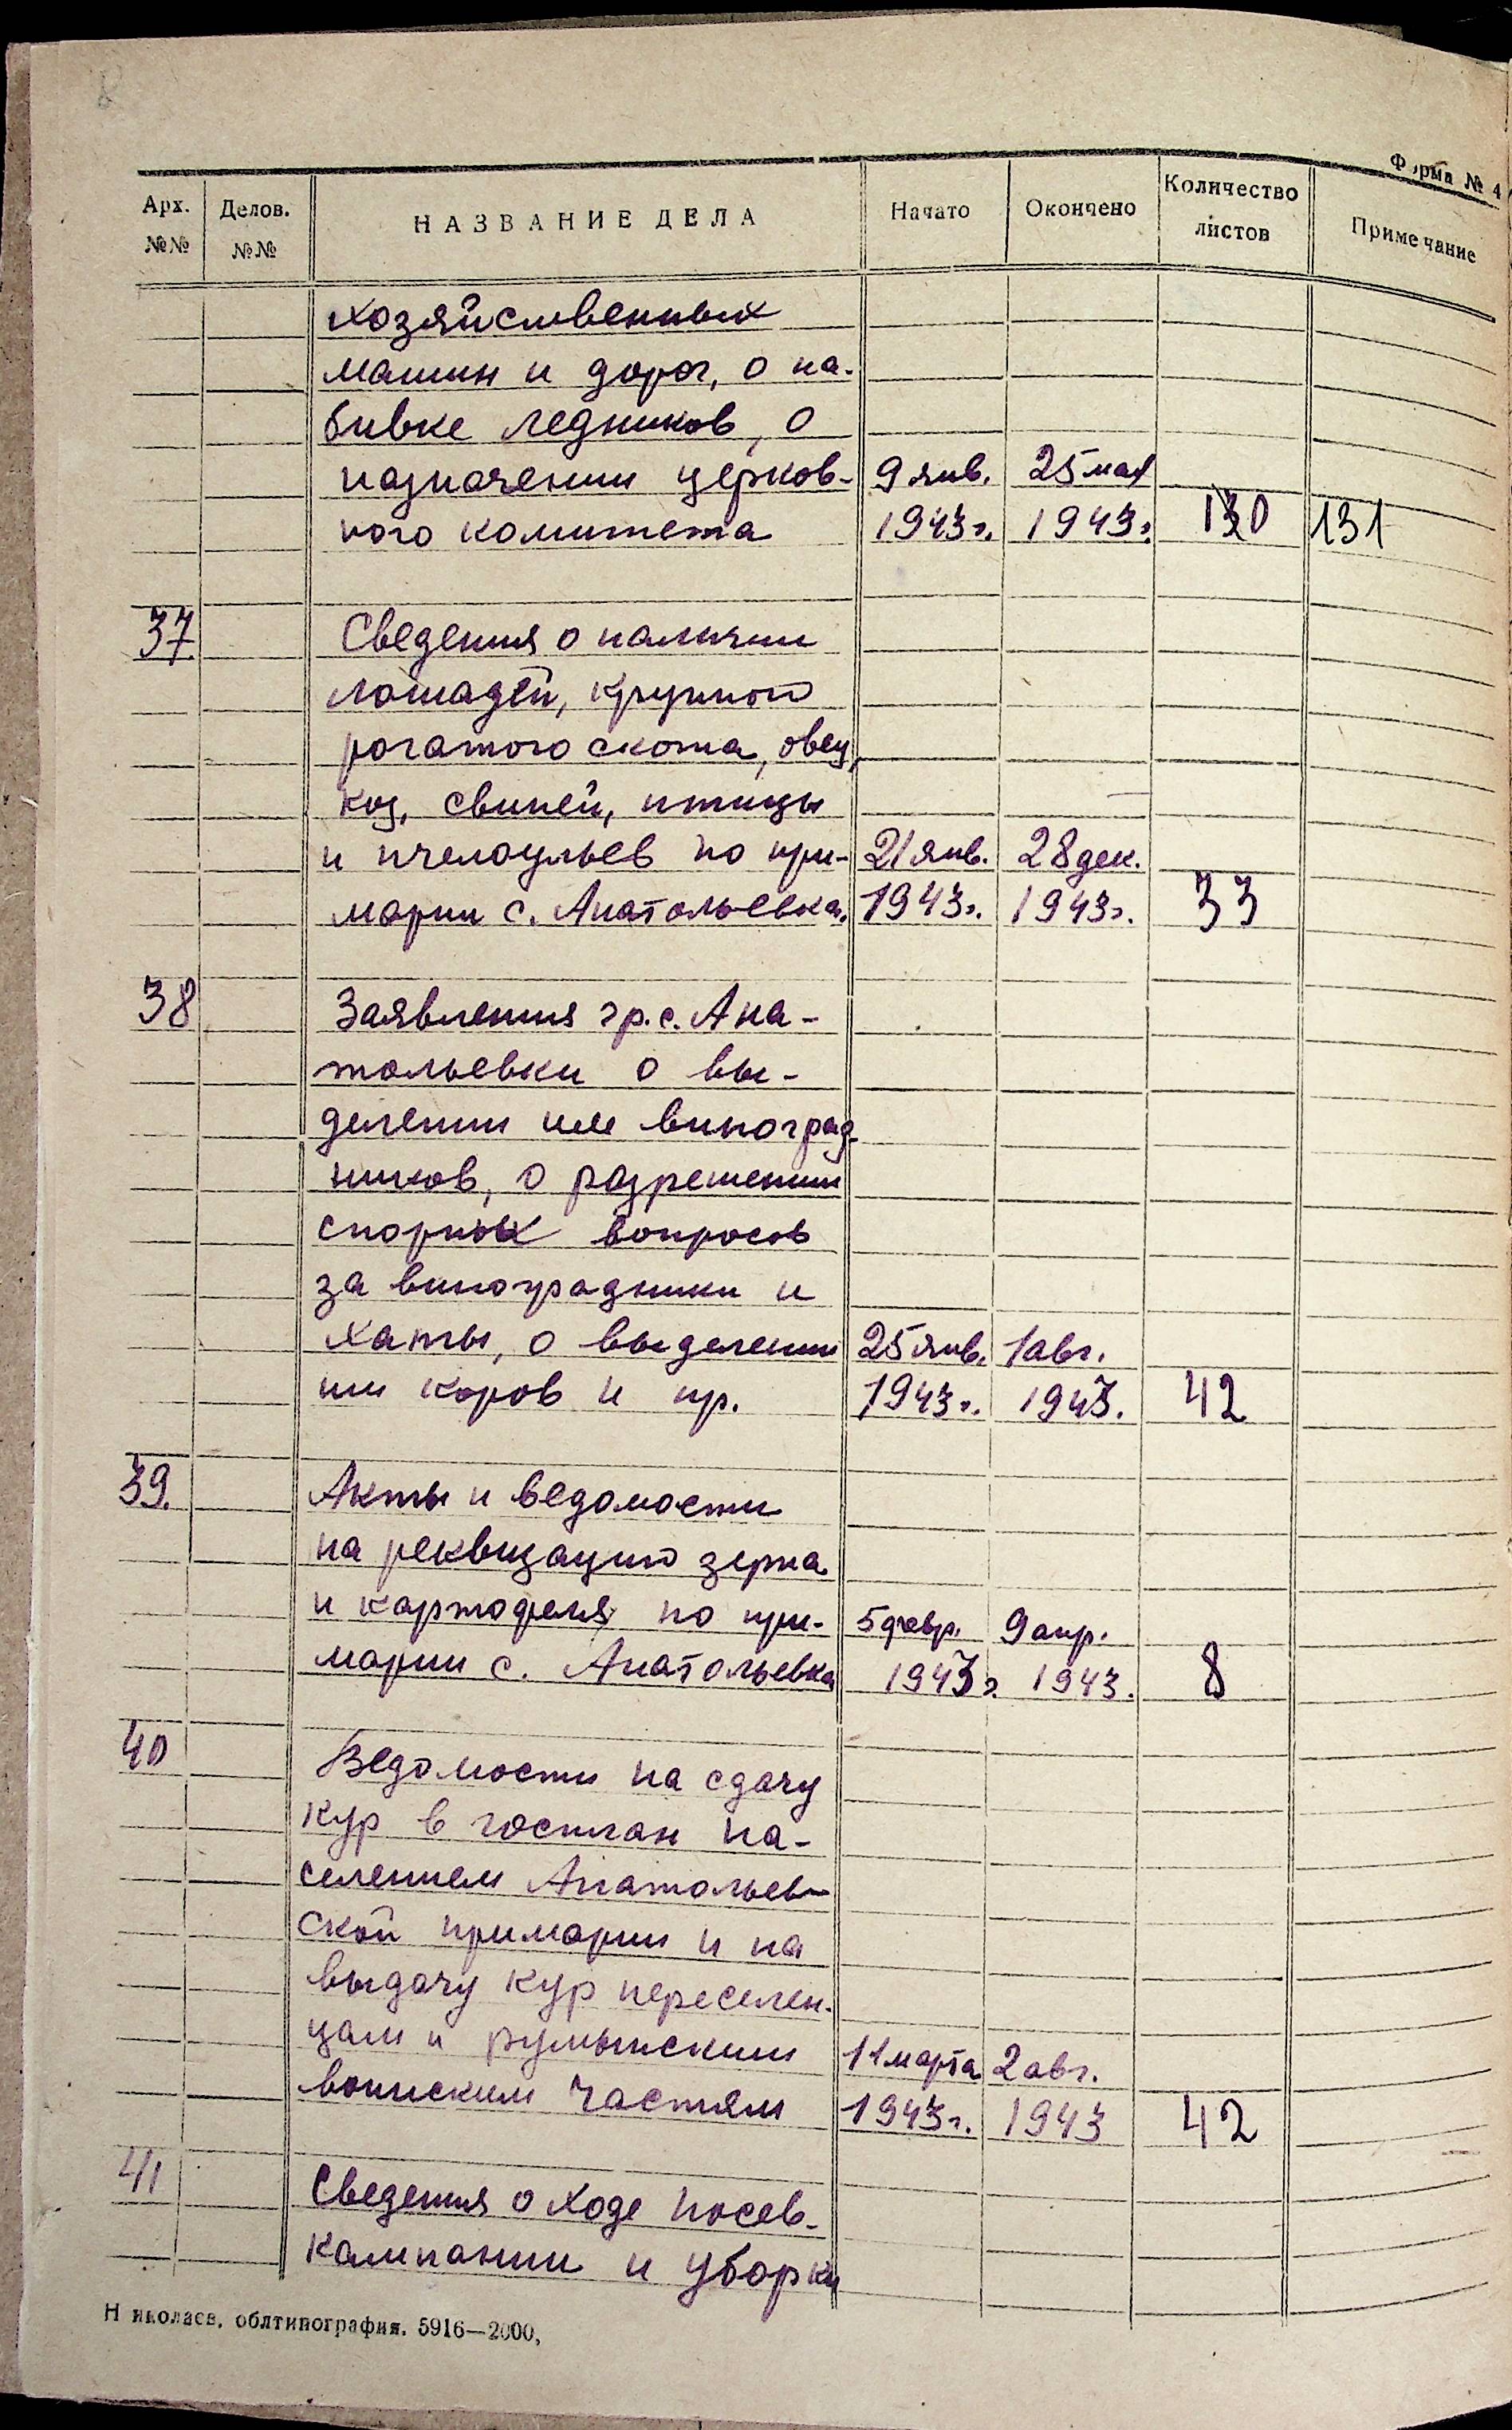 Форма № 4
Арх. №№ Делов. №№ НАЗВАНИЕ ДЕЛА Начато Окончено Количество листов Примечание
хозяйственных
машин и дорог, о на-
бивке ледников, о
назначении церков- 9 янв. 25 мая
ного комитета 1943г. 1943г. 130 131
37 Сведения о наличии
лошадей, крупного
рогатого скота, овец,
коз, свиней, птицы
и пчелоульев по при- 21 янв. 28 дек.
марии с. Анатольевка. 1943г. 1943г. 33
38 Заявления гр. с. Ана-
тольевки о вы-
делении им виноград-
ников, о разрешении
спорных вопросов
за виноградники и
хаты, о выделении 25 янв. 1 авг.
им коров и пр. 1943г. 1943. 42
39. Акты и ведомости
на реквизацию зерна
и картофеля по при- 5 февр. 9 апр.
марии с. Анатольевка 1943г. 1943. 8
40 Ведомости на сдачу
кур в госплан на-
селением Анатольев-
ской примарии и на
выдачу кур переселен-
цам и румынским 11 марта 2 авг.
воинским частям 1943г. 1943 42
41 Сведения о ходе посев-
кампании и уборки
Николаев, облтипография. 5916—2000,